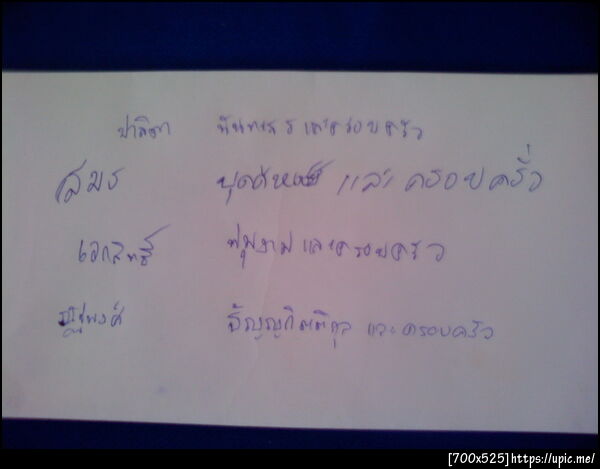 ปาลิตา นันทเสร และครอบครัว
สมร และ ครอบครัว
เอกสิทธิ์ พุ่มงาม และครอบครัว
ณัฐพงศ์ ธัญญกิตติกุล และครอบครัว
[700x525]https://upic.me/